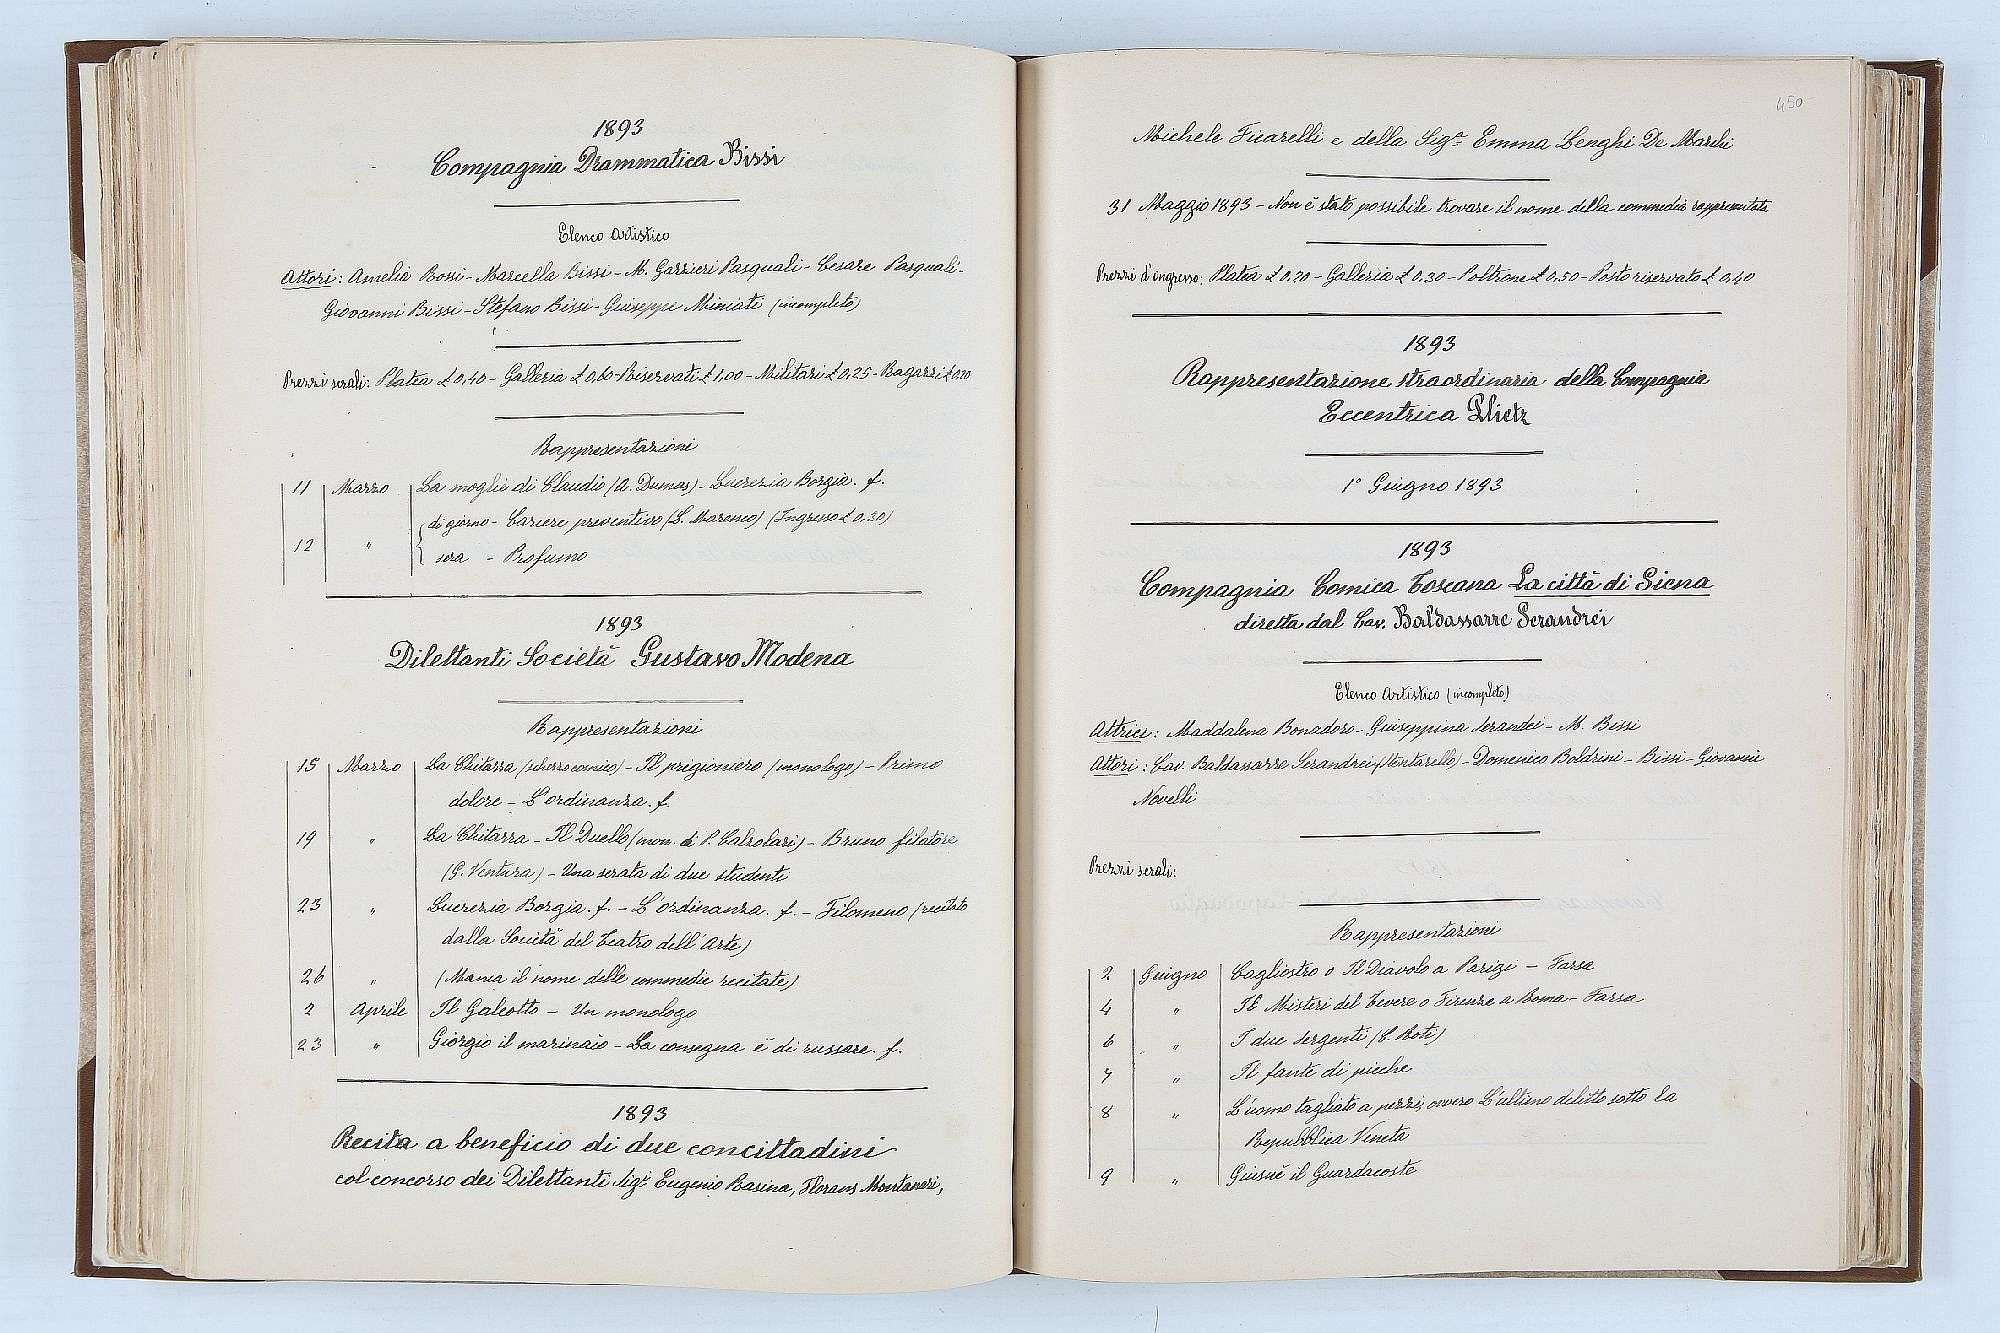 1893
Compagnia Drammatica Bissi
Elenco Artistico
Attori: Amelia Bossi - Marcella Bissi - M. Garzieri Pasquali - Cesare Pasquali -
Giovanni Bissi - Stefano Bissi - Giuseppe Miniati (incompleto)
Prezzi serali: Platea £ 0,40 - Galleria £ 0,60 - Riservati £ 1,00 - Militari £ 0,25 - Ragazzi £ 0,20
Rappresentazioni
11 Marzo La moglie di Claudio (A. Dumas) - Lucrezia Borgia. f.
di giorno - Carcere preventivo (L. Marenco) (Ingresso £ 0,30)
12 " sera - Profumo
1893
Dilettanti Società Gustavo Modena
Rappresentazioni
15 Marzo La Chitarra (scherzo comico) - Il prigioniero (monologo) - Primo
dolore - L'ordinanza. f.
19 " La Chitarra - Il Duello (mon. di P. Calzolari) - Bruno filatore
(G. Ventura) - Una serata di due studenti
23 " Lucrezia Borgia. f. - L'ordinanza. f. - Filomeno (recitato
dalla Società del Teatro dell'Arte)
26 " (Manca il nome delle commedie recitate)
2 Aprile Il Galeotto - Un monologo
23 " Giorgio il marinaio - La consegna è di russare. f.
1893
Recita a beneficio di due concittadini
col concorso dei Dilettanti Sigi Eugenio Rasina, Florans Montanari,
450
Michele Ficarelli e della Siga Emma Lenghi De
31 Maggio 1893 - Non è stato possibile trovare il nome della commedia rappresentata
Prezzi d'ingresso: Platea £ 0,20 - Galleria £ 0,30 - Poltrone £ 0,50 - Posto riservato £ 0,40
1893
Rappresentazione straordinaria della Compagnia
Eccentrica
1° Giugno 1893
1893
Compagnia Comica Toscana La città di Siena
diretta dal Cav. Baldassarre Serandrei
Elenco Artistico (incompleto)
Attrici: Maddalena Bonadoro - Giuseppina Serandei - M. Bissi
Attori: Cav. Baldassarre Serandrei - Domenico Boldrini - Bissi - Giovanni
Novelli
Prezzi serali:
Rappresentazioni
2 Giugno Cagliostro o Il Diavolo a Parigi - Farsa
4 " Il Misteri del Tevere o Firenze a Roma - Farsa
6 " I due sergenti (C. Roti)
7 " Il fante di picche
8 " L'uomo tagliato a pezzi, ovvero L'ultimo delitto sotto la
Repubblica Veneta
9 " Giosuè il Guardacoste